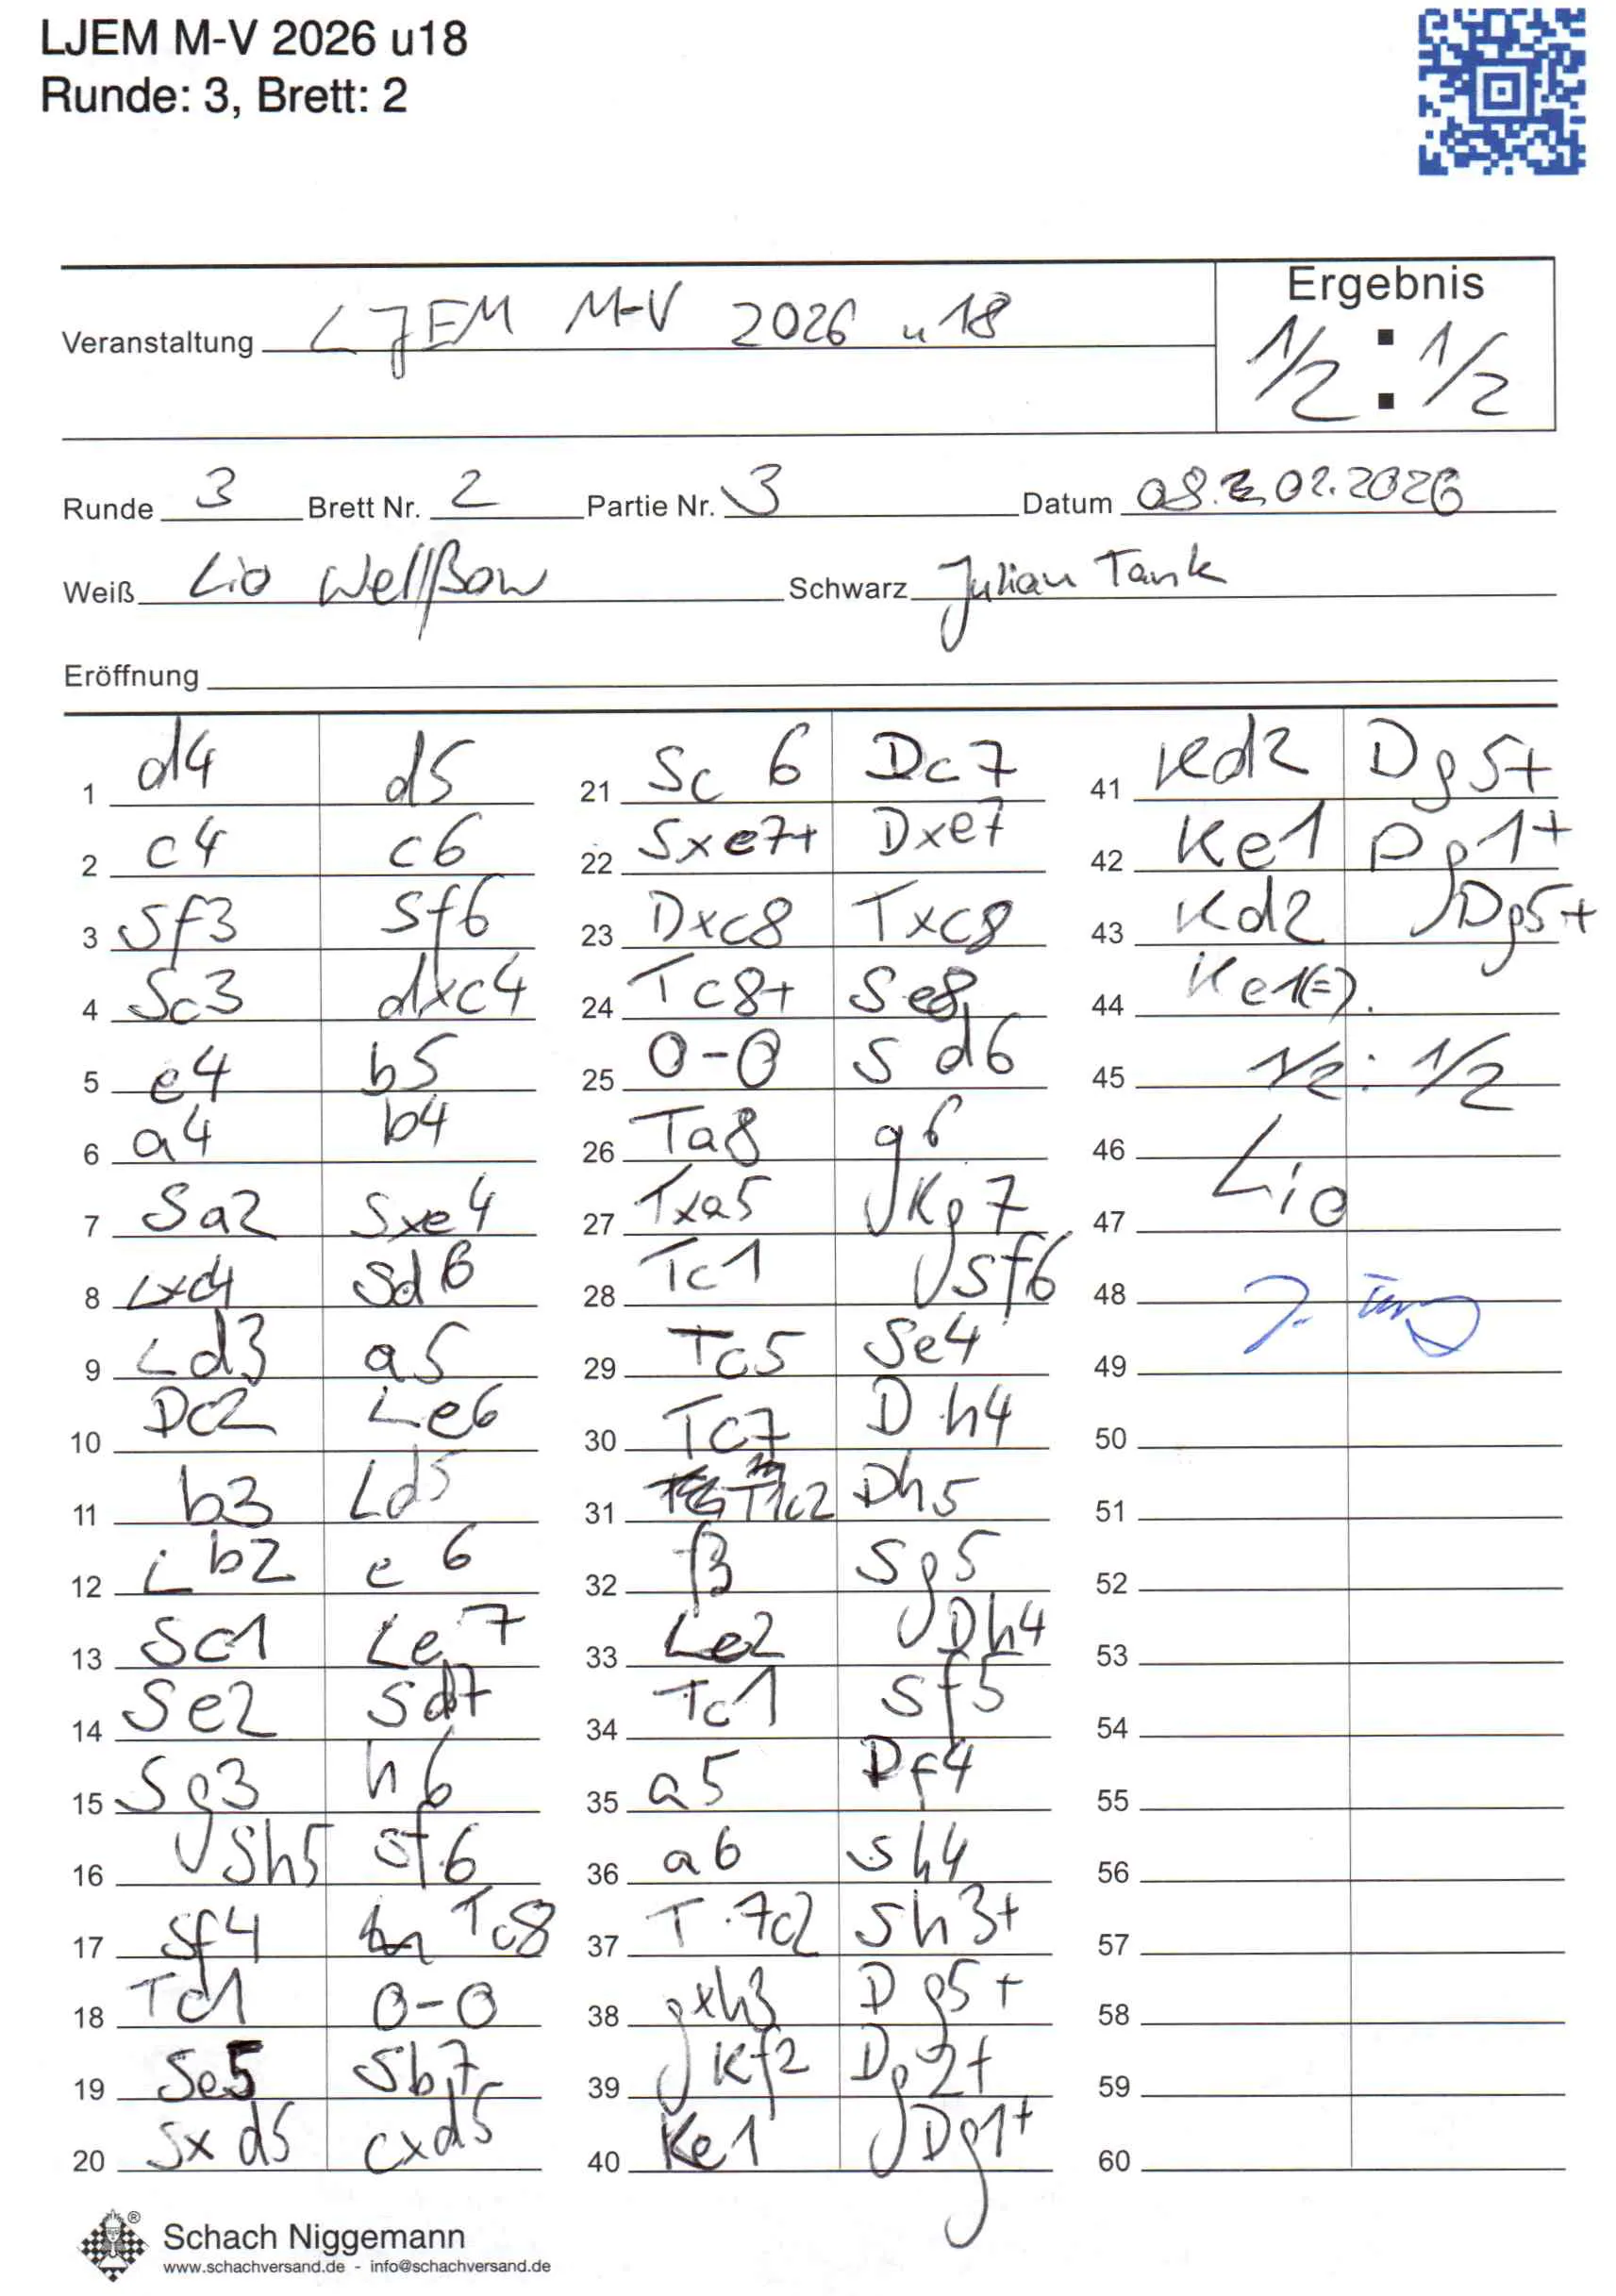 LJEM M-V 2026 u18
Runde: 3, Brett: 2
Ergebnis
Veranstaltung LJEM M-V 2026 u18
1/2 : 1/2
Runde 3 Brett Nr. 2 Partie Nr. 3 Datum 08. 02.2026
Weiß Lio Wellßow Schwarz Julian Tank
Eröffnung
1 d4 d5
2 c4 c6
3 Sf3 Sf6
4 Sc3 dxc4
5 e4 b5
6 a4 b4
7 Sa2 Sxe4
8 Lxc4 Sd6
9 Ld3 a5
10 Dc2 Le6
11 b3 Ld5
12 Lb2 e6
13 Sc1 Le7
14 Se2 Sd7
15 Sg3 h6
16 Sh5 Sf6
17 Sf4 Tc8
18 Tc1 0-0
19 Se5 Sb7
20 Sxd5 cxd5
21 Sc6 Dc7
22 Sxe7+ Dxe7
23 Dxc8 Txc8
24 Tc8+ Se8
25 0-0 Sd6
26 Ta8 g6
27 Txa5 Kg7
28 Tc1 Sf6
29 Tc5 Se4
30 Tc7 Dh4
31 T1c2 Dh5
32 f3 Sg5
33 Le2 Dh4
34 Tc1 Sf5
35 a5 Df4
36 a6 Sh4
37 T7c2 Sh3+
38 gxh3 Dg5+
39 Kf2 Dg2+
40 Ke1 Dg1+
41 Kd2 Dg5+
42 Ke1 Dg1+
43 Kd2 Dg5+
44 Ke1(=).
45 1/2 : 1/2
46 Lio
47
48 J.
49
50
51
52
53
54
55
56
57
58
59
60
Schach Niggemann
www.schachversand.de - info@schachversand.de